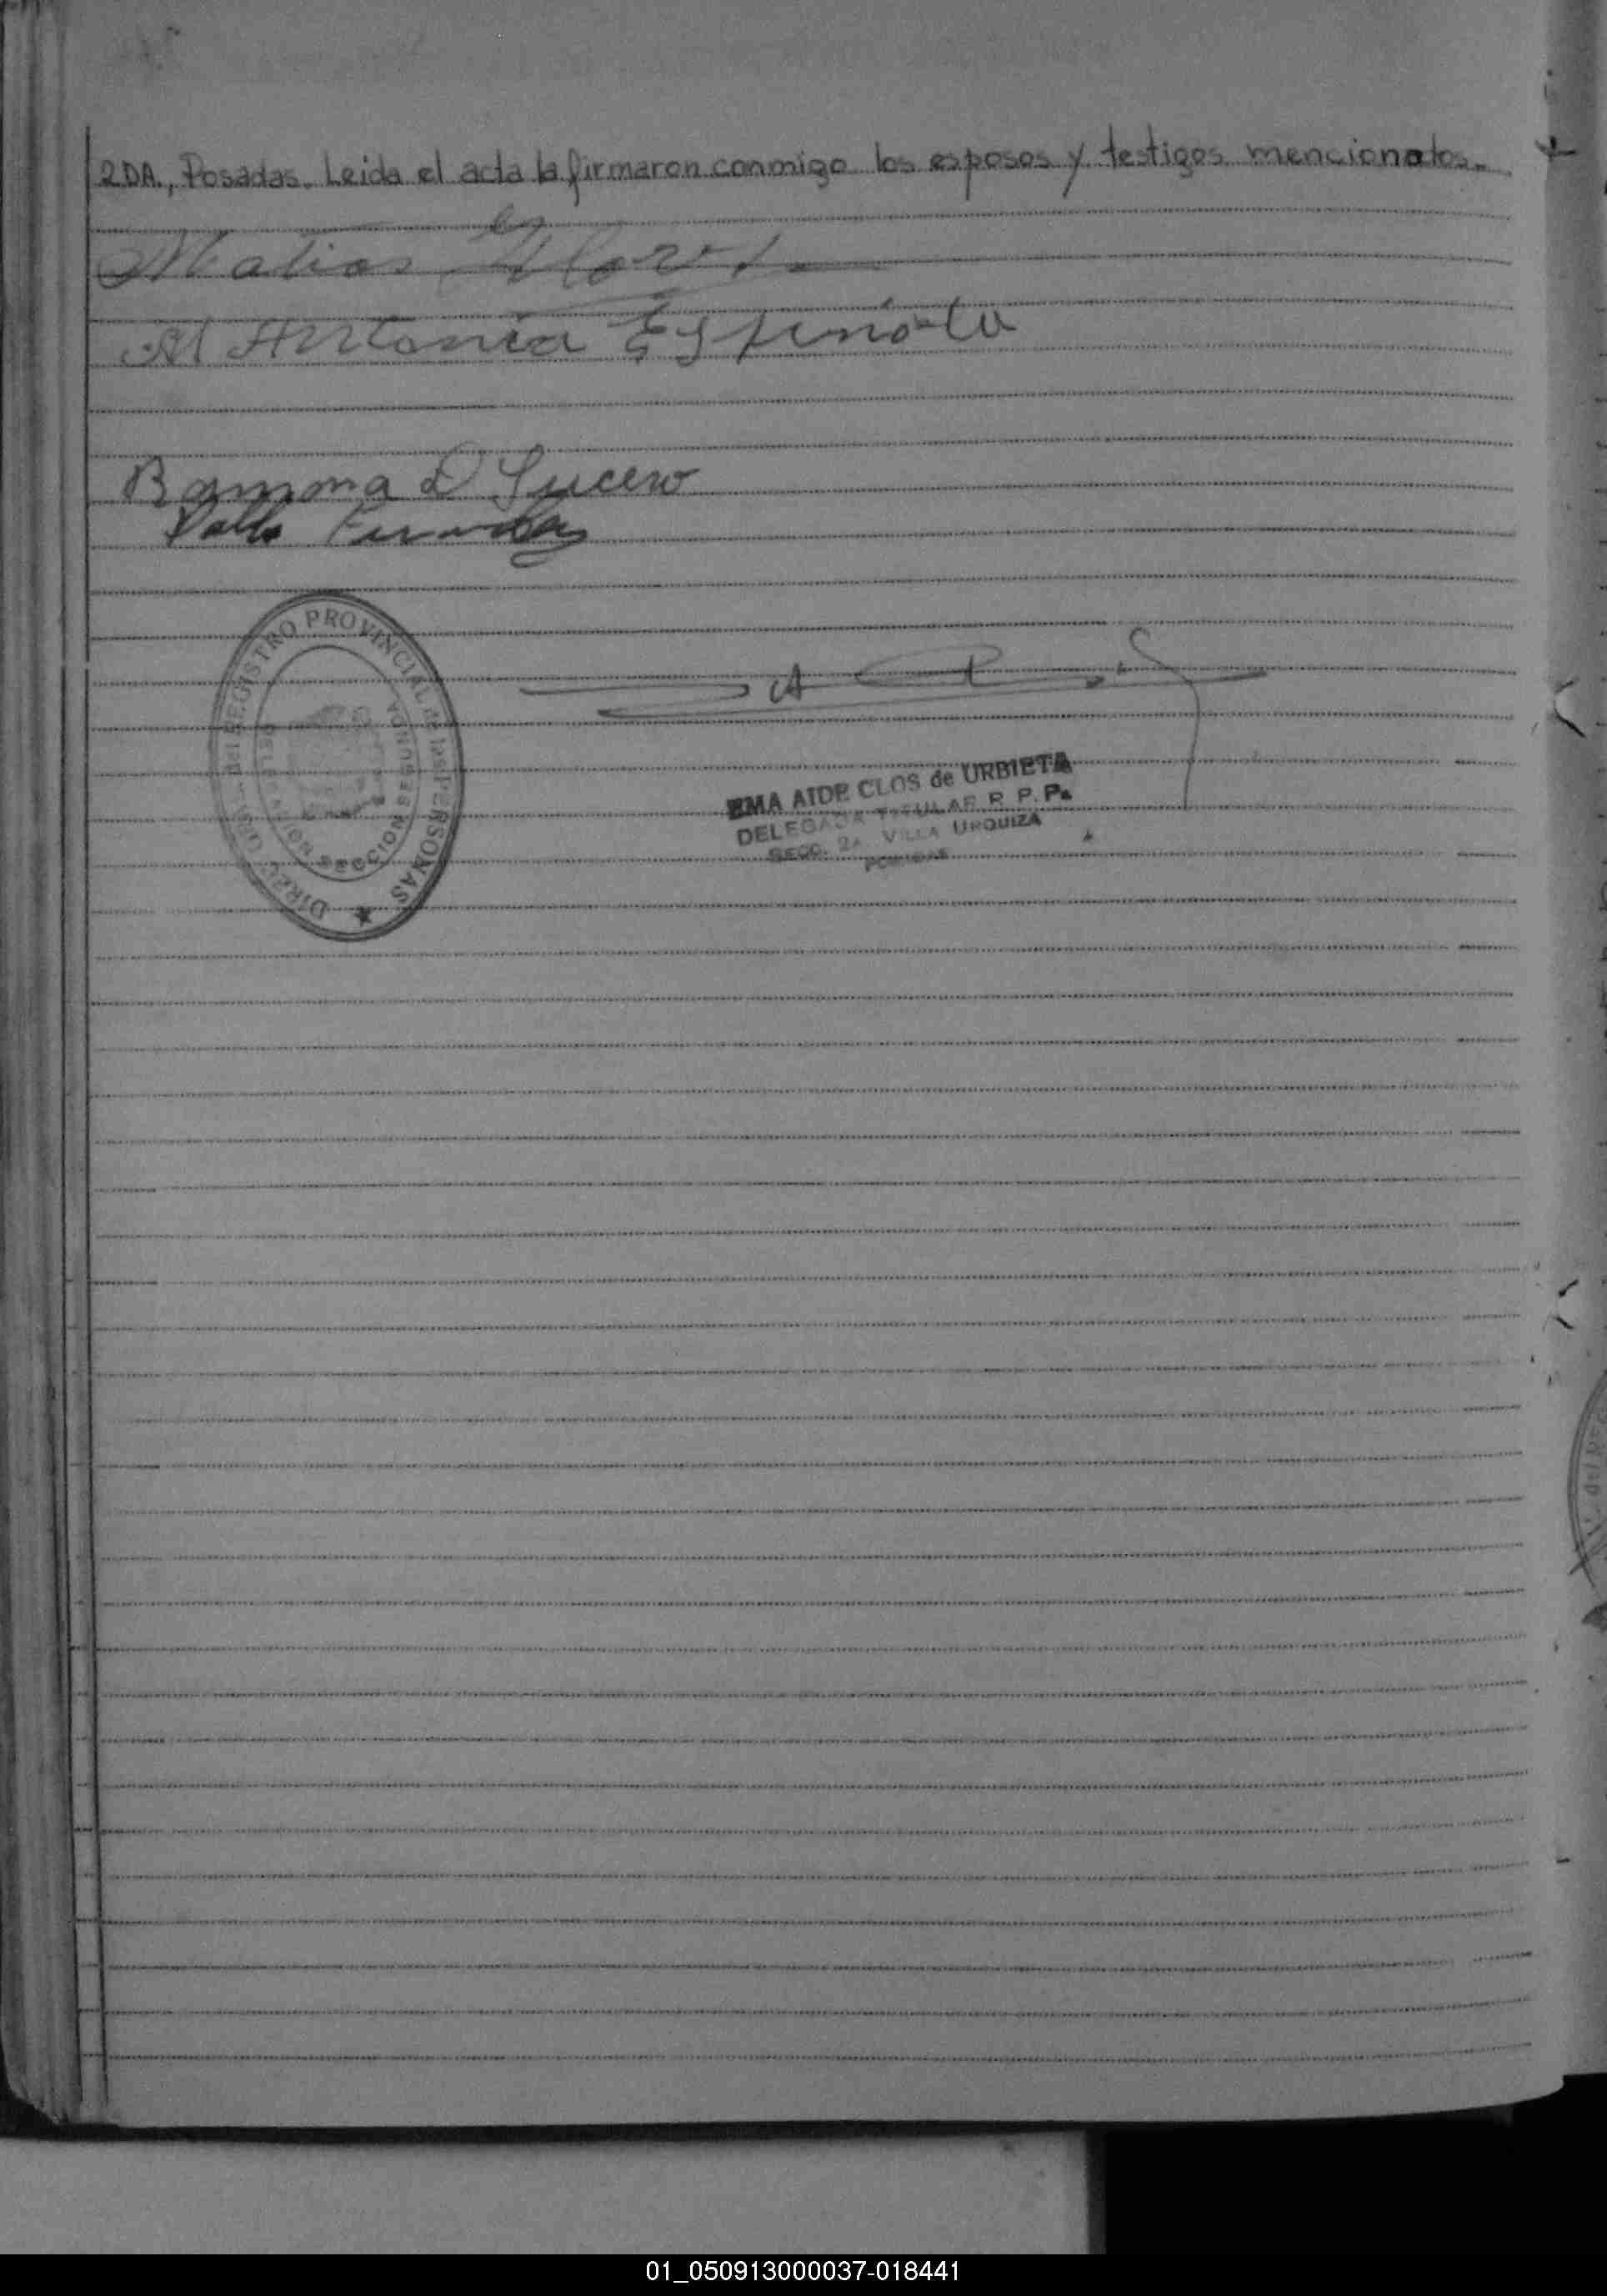 2DA., Posadas. Leida el acta la firmaron conmigo los esposos y testigos mencionados.
Matias
M Antonia Espinola
Ramona D Lucero
DIRECCION del REGISTRO PROVINCIAL de las PERSONAS
DELEGACION SECCION SEGUNDA
EMA AIDE CLOS de URBIETA
DELEGADA TITULAR R. P. P.
SECC. 2A. VILLA URQUIZA
POSADAS
01_050913000037-018441